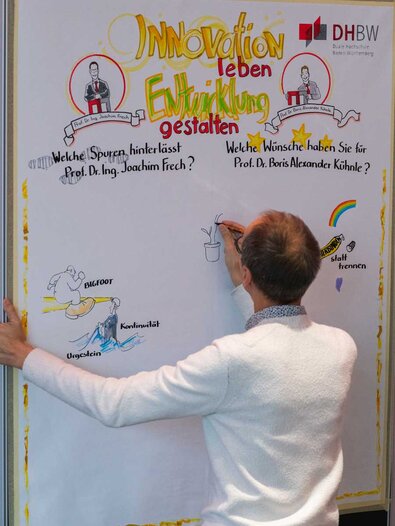 INNOVation
leben
Entwicklung
gestalten
DHBW
Duale Hochschule
Baden-Württemberg
Prof. Dr. Ing. Joachim Frech
Prof. Dr. Boris Alexander Kühnle
Welche Spuren hinterlässt
Prof. Dr. Ing. Joachim Frech?
Welche Wünsche haben Sie für
Prof. Dr. Boris Alexander Kühnle?
BIGFOOT
Kontinuität
Urgestein
statt
trennen